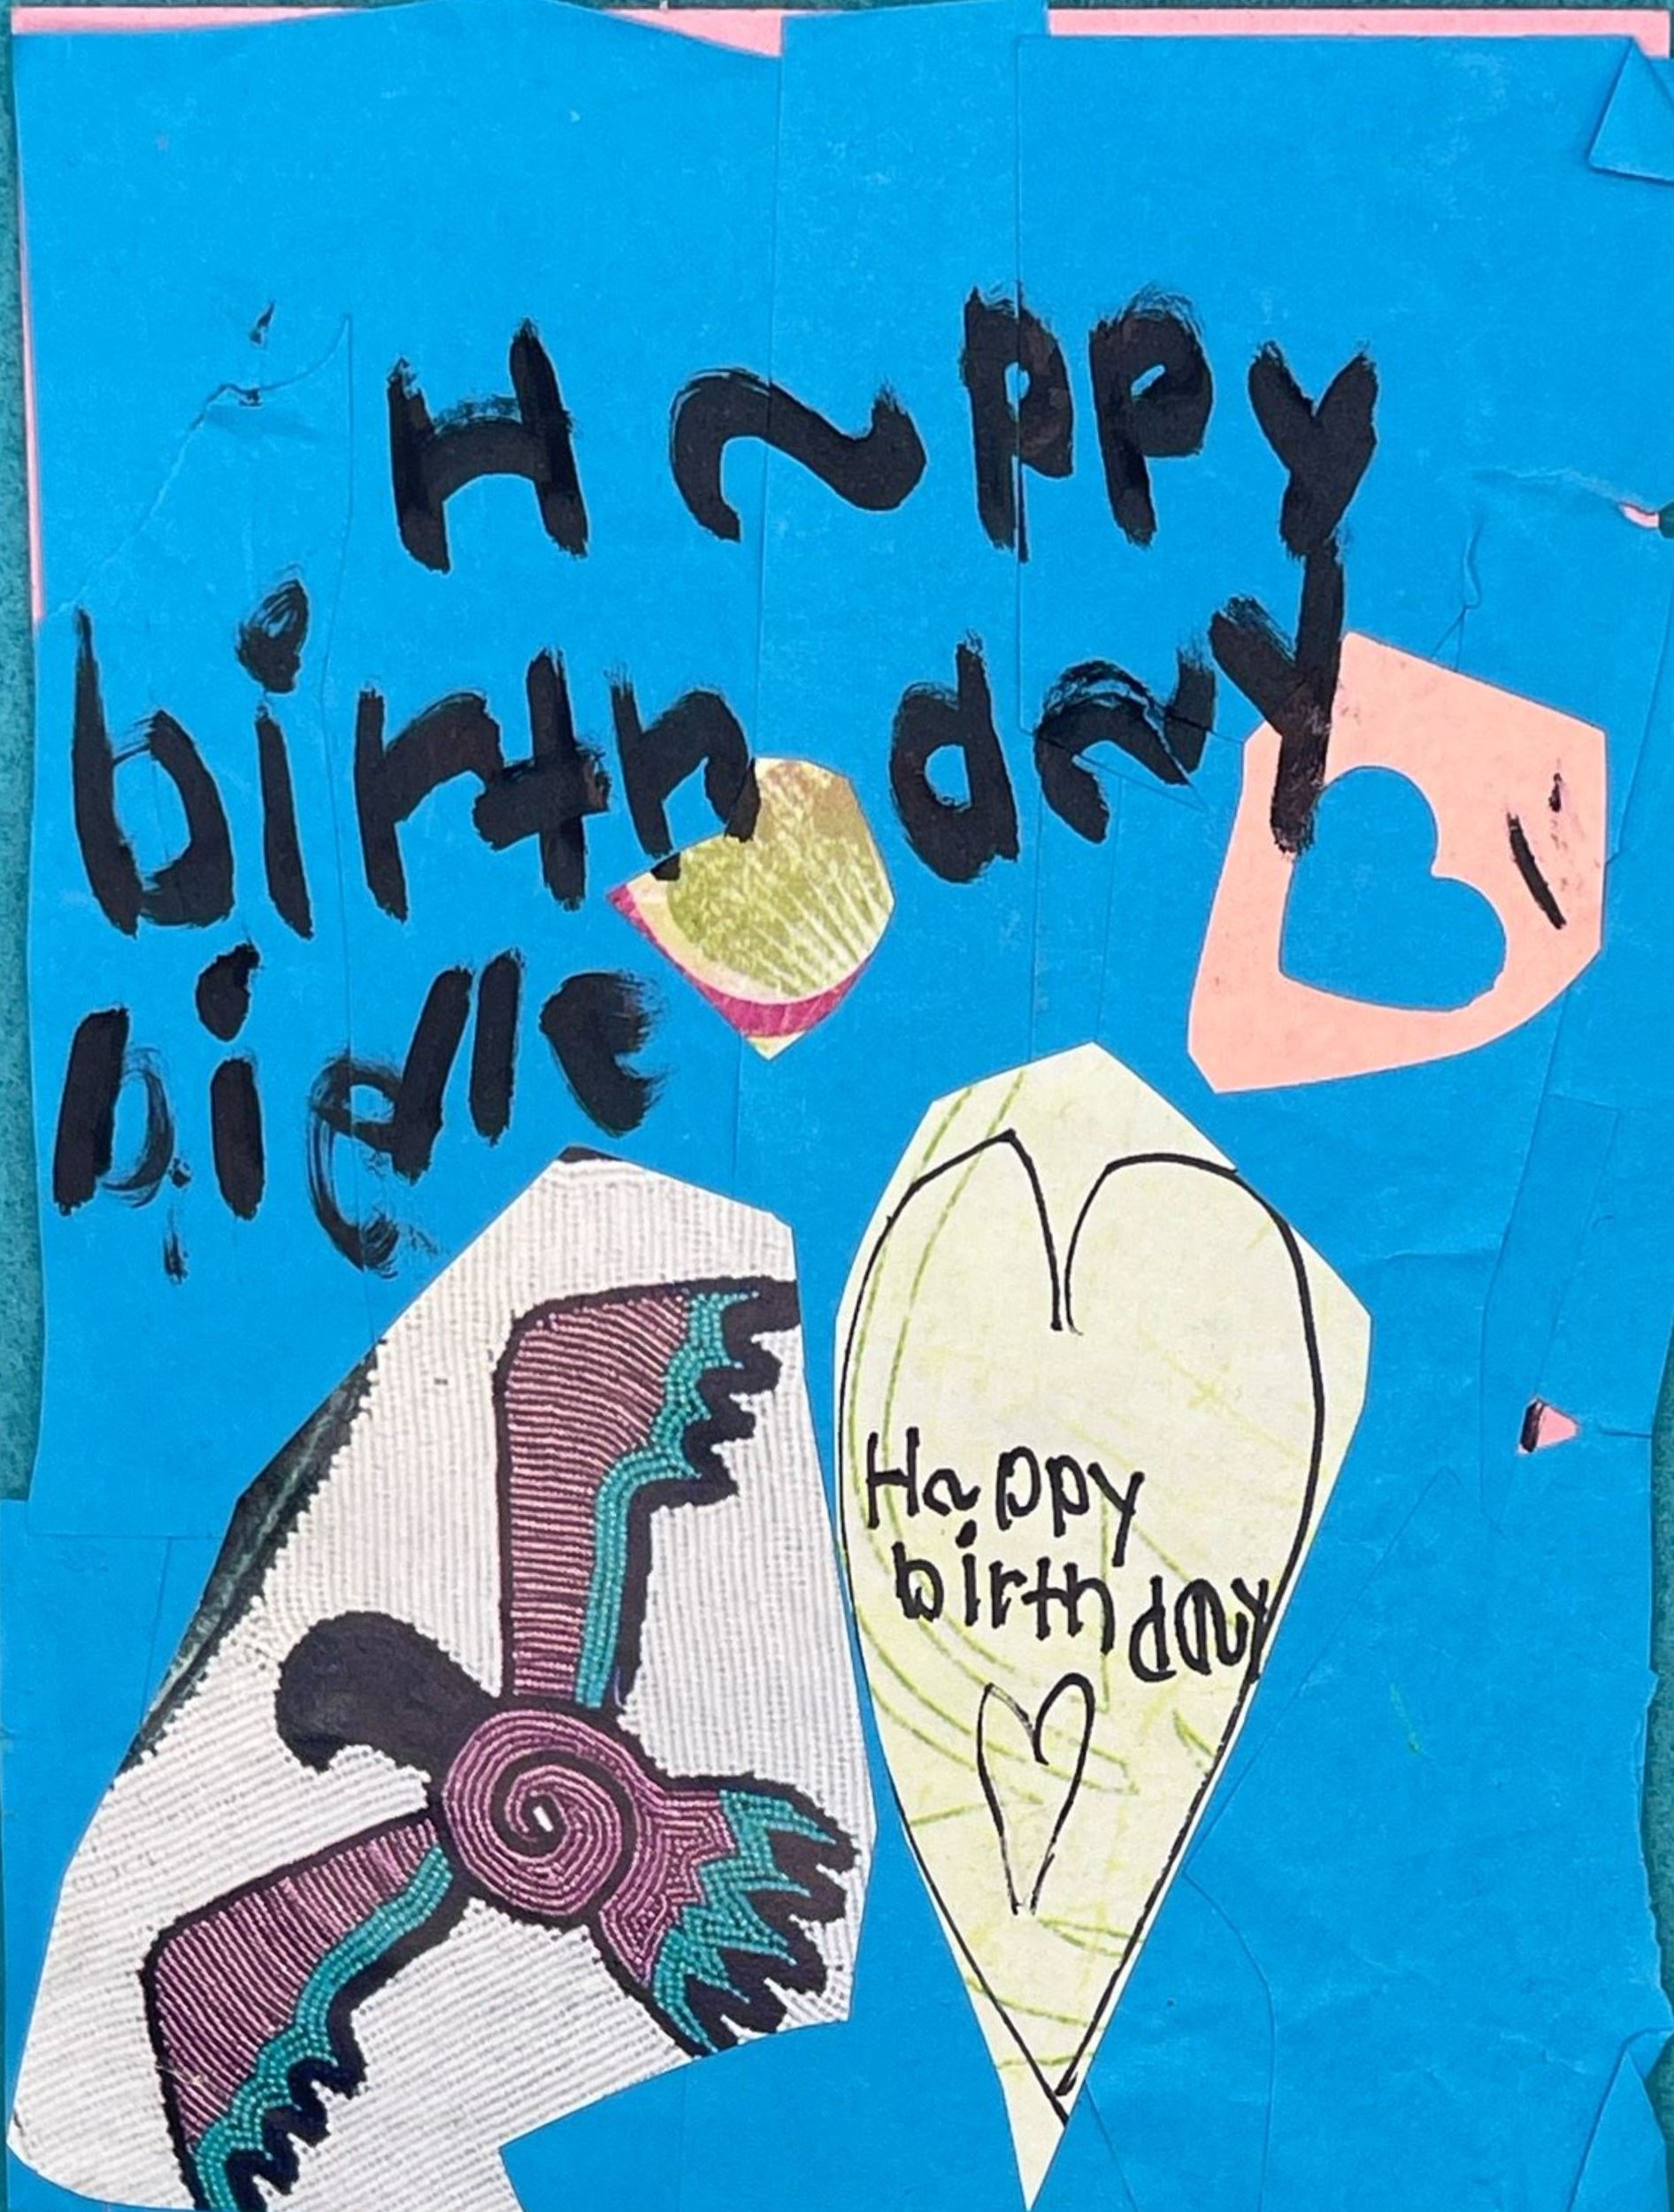 Happy
birth day
bidle
Happy
birth day